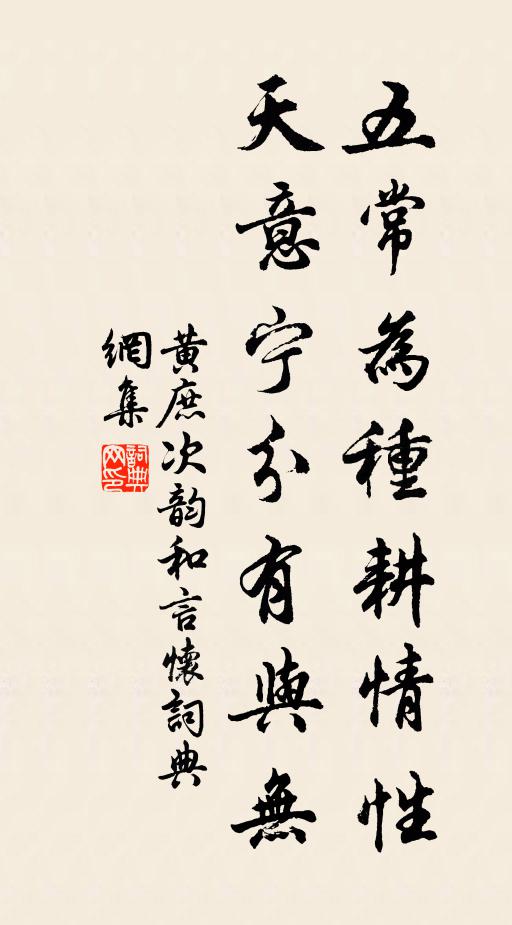 五常為種耕情性
天意宁分有與無
黄庶次韵和言懷詞典
網集
詞典
网印